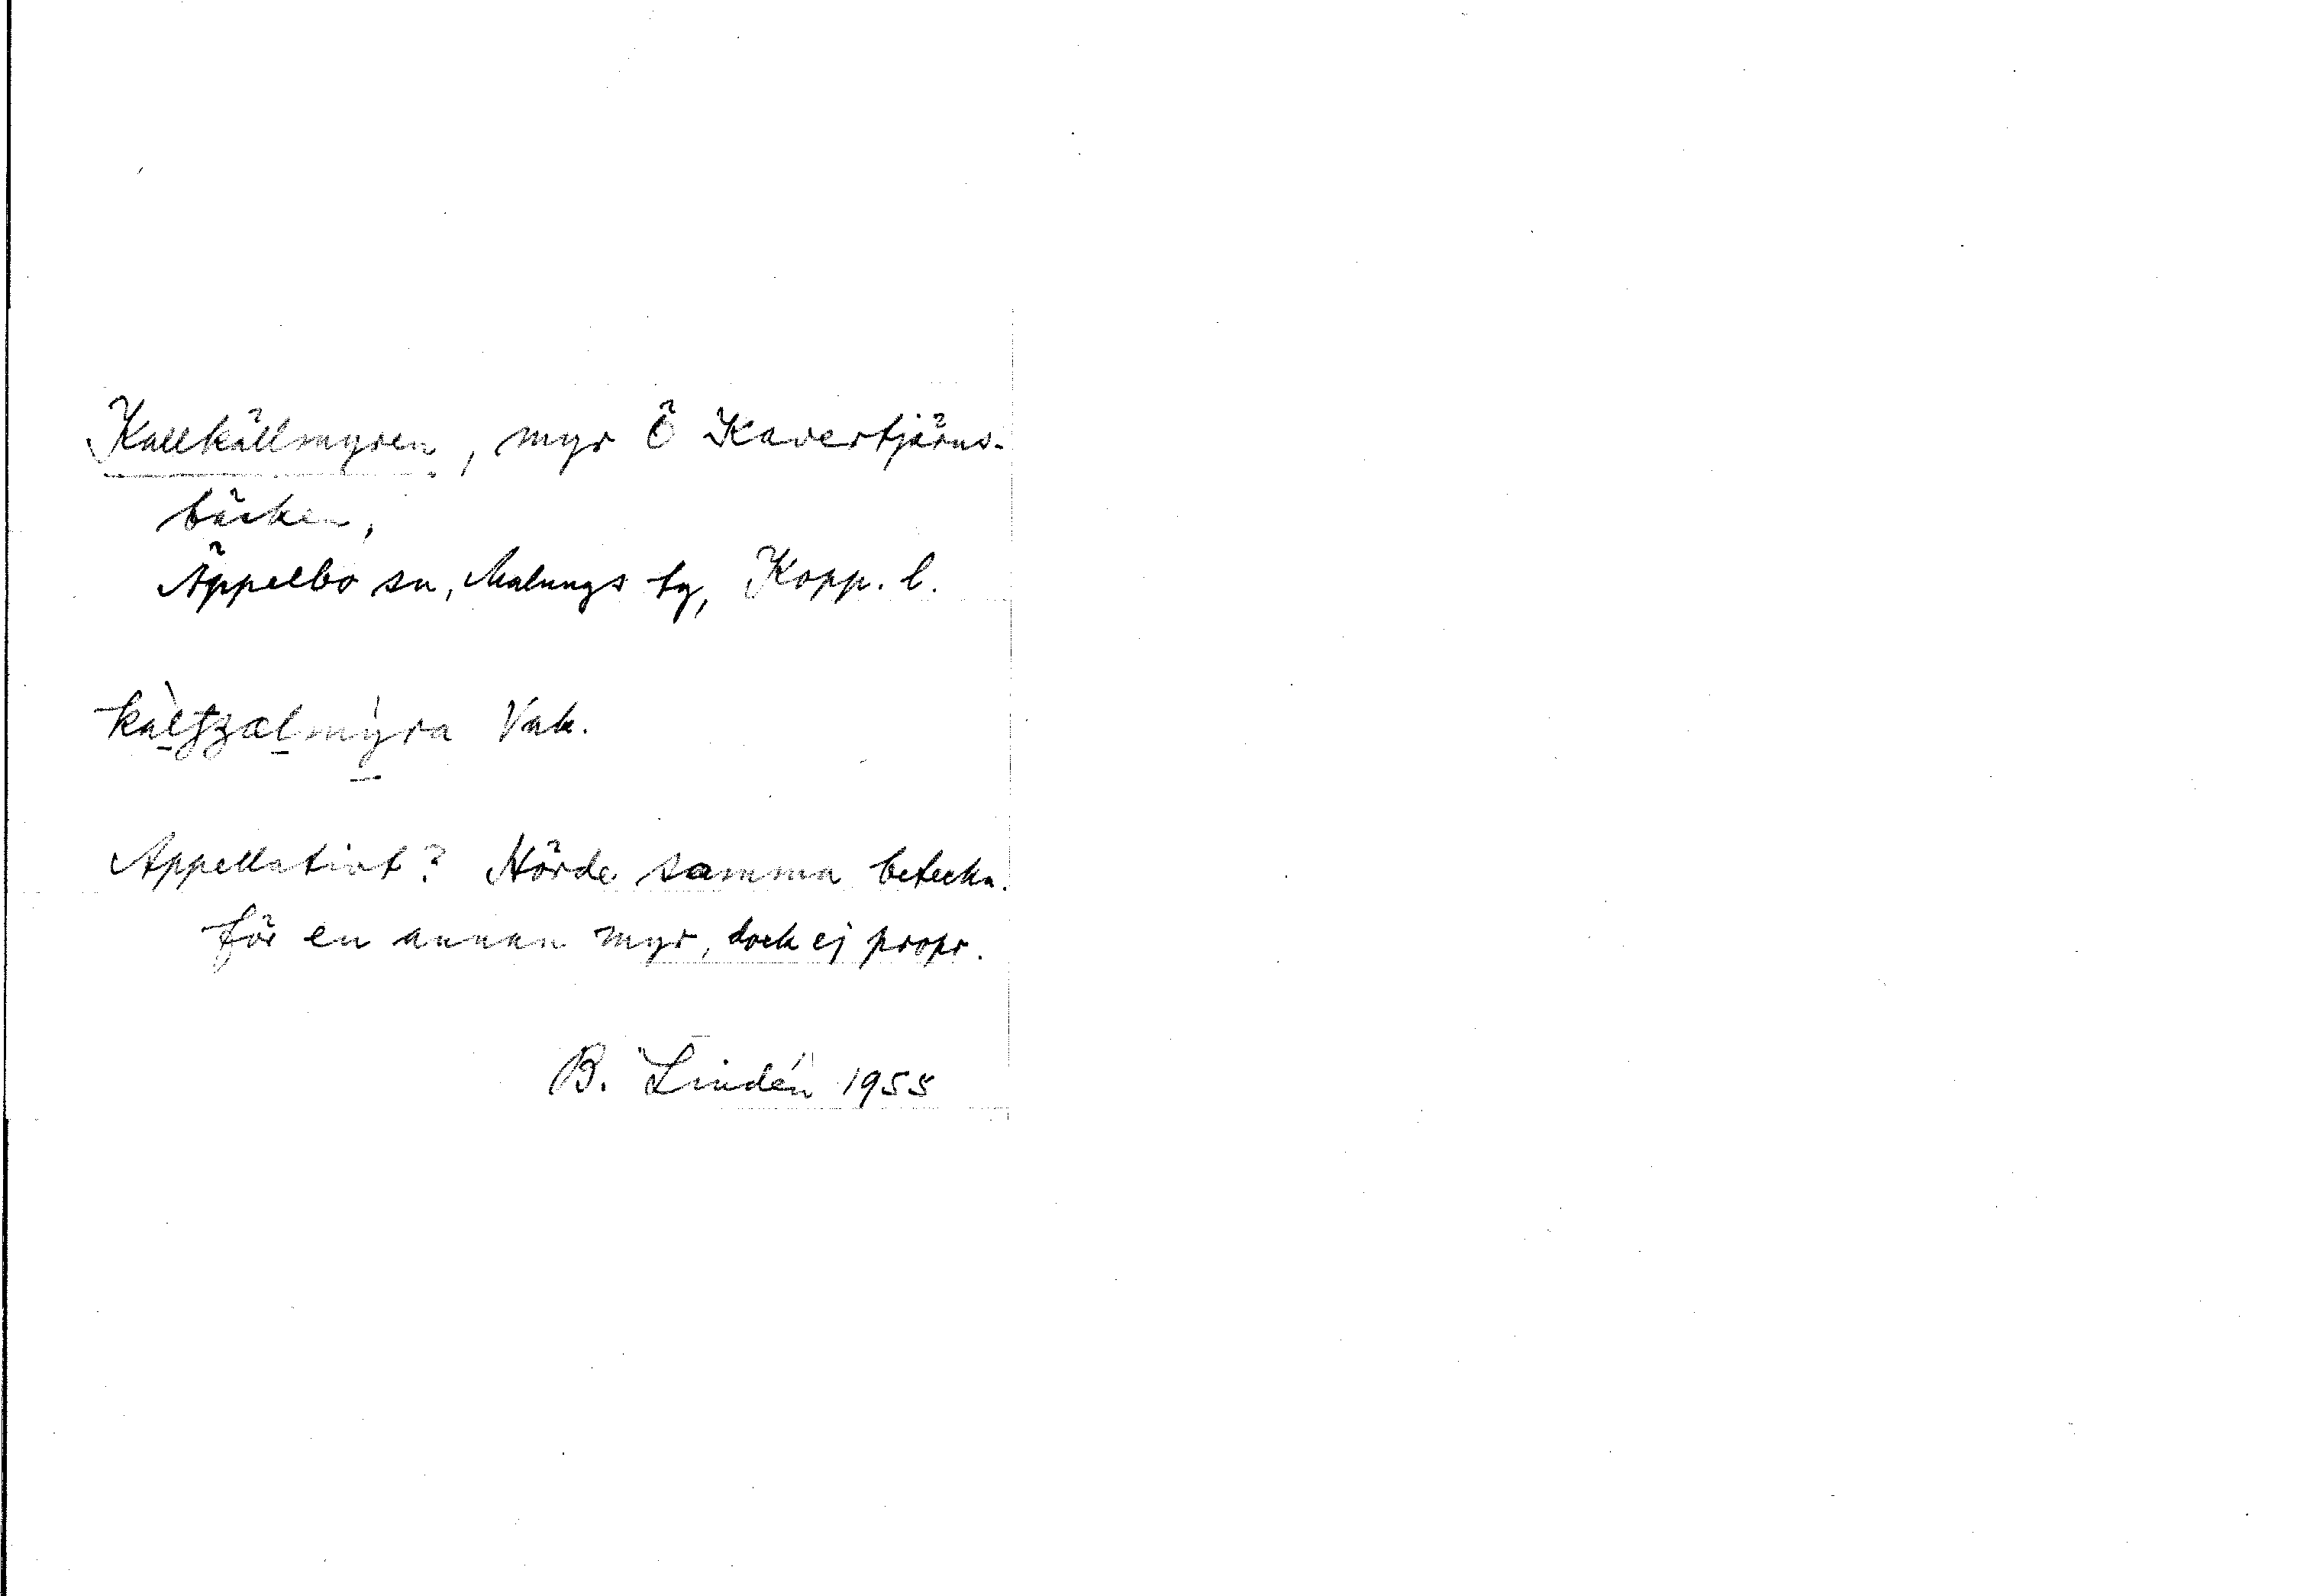 Kallkällmyren, myr Ö Kavertjärns-
bäcken,
Äppelbo sn, Malungs tg, Kopp. l.
Vak.
Appellativt? Hörde samma beteckn.
för en annan myr, dock ej propr.
B. Lindén 1955